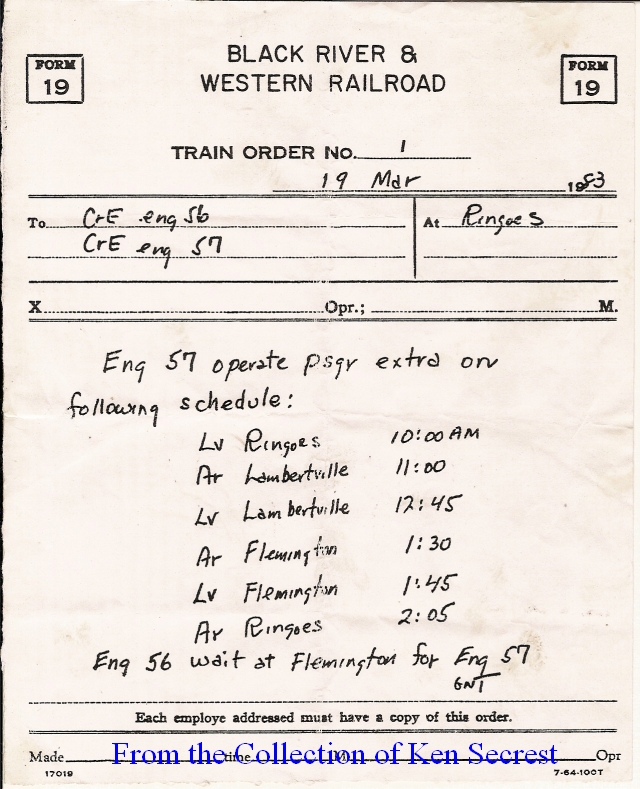 FORM 19
BLACK RIVER &
WESTERN RAILROAD
FORM 19
TRAIN ORDER No. 1
19 Mar 1983
To CrE eng 56
CrE eng 57
At Ringoes
X Opr.; M.
Eng 57 operate psgr extra on
following schedule:
Lv Ringoes 10:00 AM
Ar Lambertville 11:00
Lv Lambertville 12:45
Ar Flemington 1:30
Lv Flemington 1:45
Ar Ringoes 2:05
Eng 56 wait at Flemington for Eng 57
GNT
Each employe addressed must have a copy of this order.
Made time M Opr
From the Collection of Ken Secrest
17019 7-64-100T